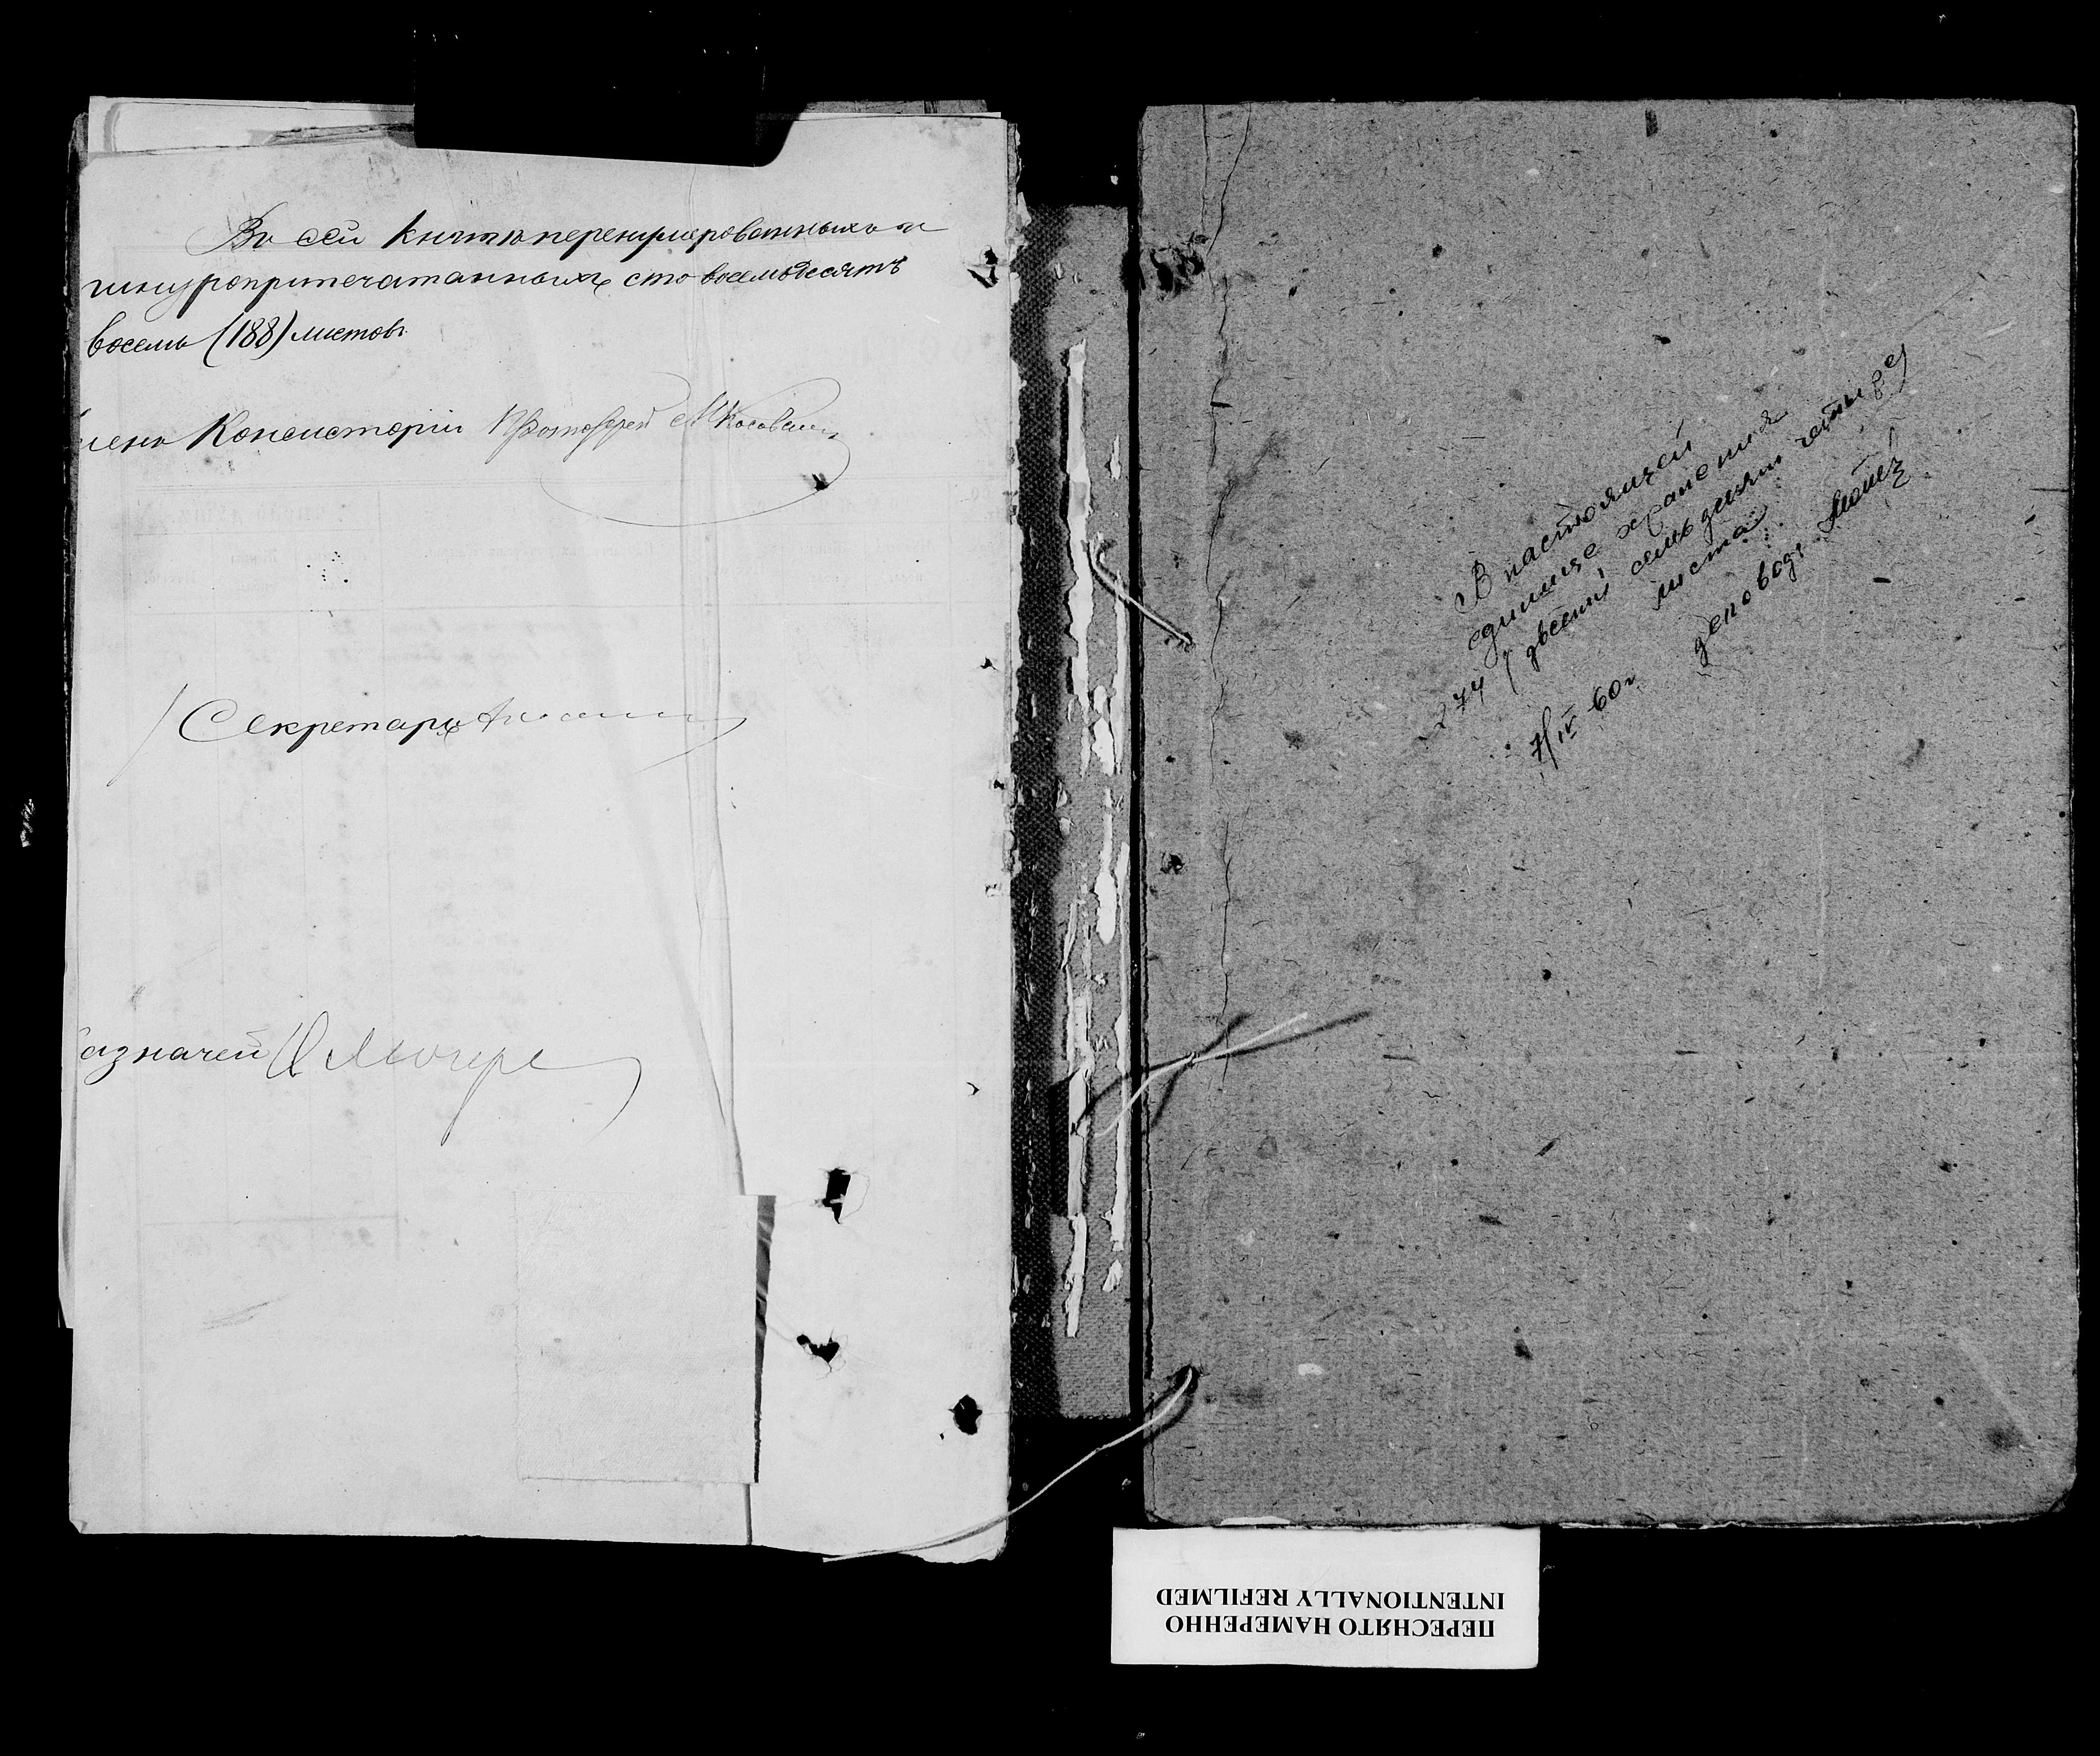 Въ сей книгѣ перенумерованныхъ и
шнуроприпечатанныхъ сто восемьдесятъ
восемь (188) листовъ
членъ Консисторіи Протоіерей
Секретарь
азначей
В настоящей
единице хранения
274 (двести семьдесят четыре)
листа
7/IV 60г деловод.
ПЕРЕСНЯТО НАМЕРЕННО
INTENTIONALLY REFILMED